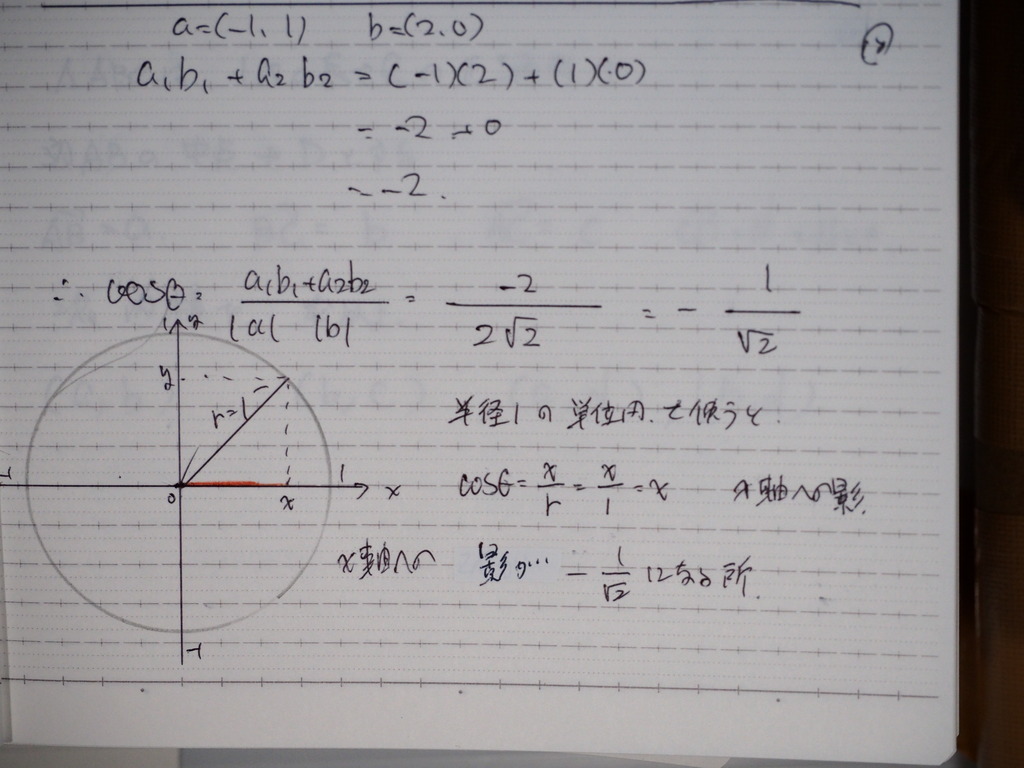 a=(-1, 1) b=(2, 0)
a₁b₁ + a₂b₂ = (-1)(2) + (1)(0)
= -2 + 0
= -2.
∴ cosθ = a₁b₁+a₂b₂ / |a| |b| = -2 / 2√2 = - 1/√2
1 y
y
r=1
半径1の単位円で使うと.
-1 0 x 1 x
cosθ = x/r = x/1 = x x軸への影.
x軸への 影が… - 1/√2 になる所.
-1